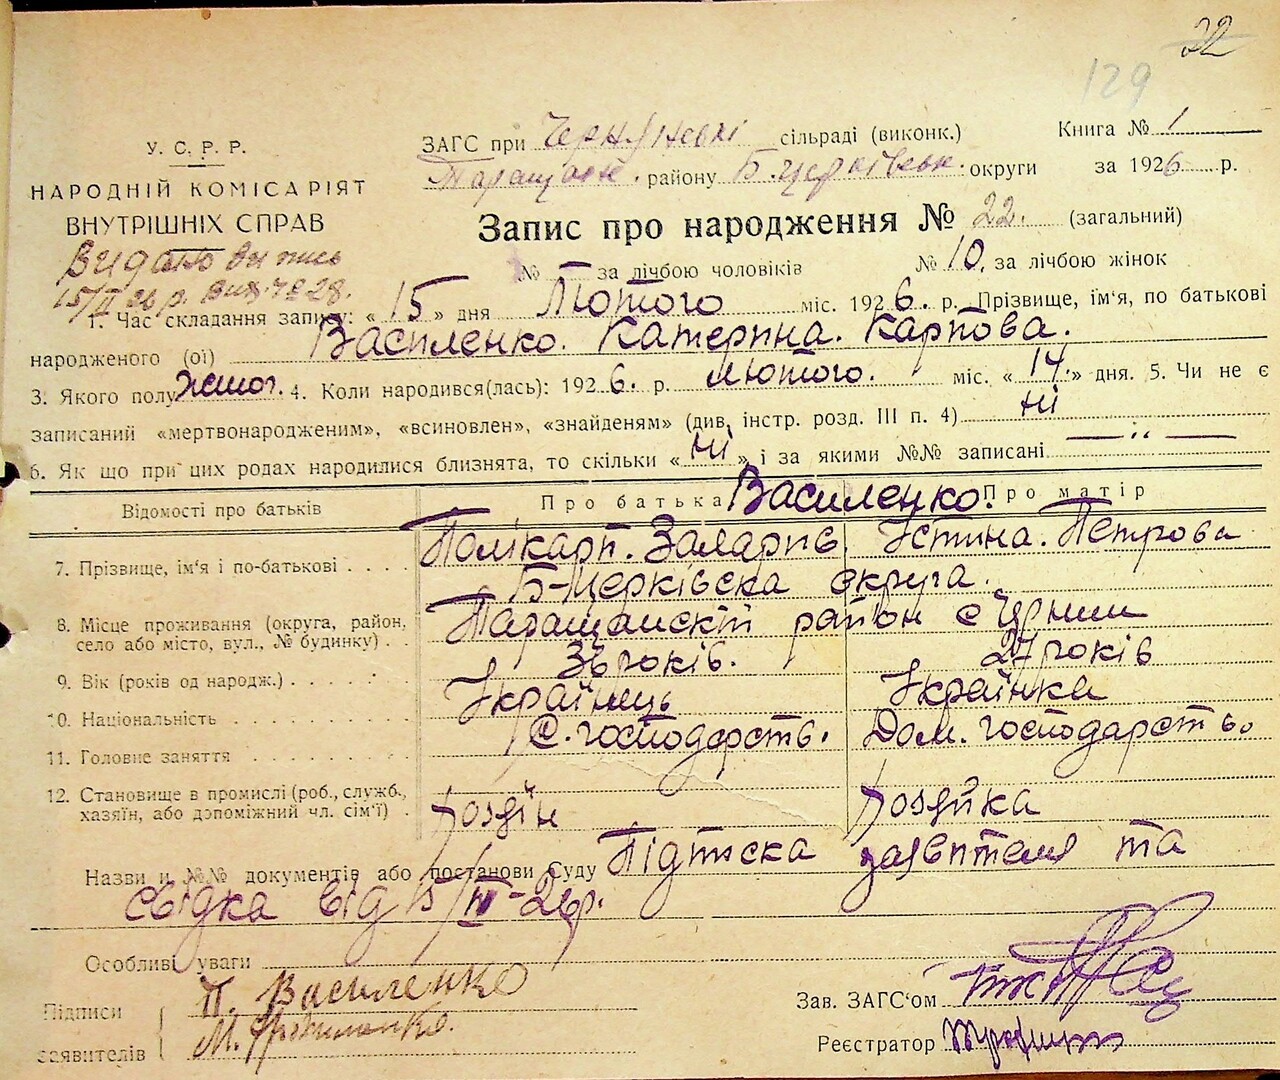 22
129
У. С. Р. Р.
НАРОДНІЙ КОМІСАРІЯТ
ВНУТРІШНІХ СПРАВ
Видано выпись
15/II 26 р. Вих. № 28.
ЗАГС при сільраді (виконк.)
Таращанськ. району Б. Церківськ. округи
Книга № 1
за 1926 р.
Запис про народження № 22. (загальний)
№ — за лічбою чоловіків № 10. за лічбою жінок
1. Час складання запису: « 15 » дня Лютого міс. 1926. р. Прізвище, ім'я, по батькові
народженого (ої) Василенко. Катерина. Карпова.
3. Якого полу жіноч. 4. Коли народився(лась): 1926. р. лютого. міс. « 14. » дня. 5. Чи не є
записаний «мертвонародженим», «всиновлен», «знайденям» (див. інстр. розд. III п. 4) ні
6. Як що при цих родах народилися близнята, то скільки « ні » і за якими №№ записані — „ —
Відомості про батьків Про батька Василенко. Про матір
7. Прізвище, ім'я і по-батькові . . . . Полікарп. Істина. Петрова
Б-Церківска округа.
8. Місце проживання (округа, район, село або місто, вул., № будинку) . . Таращанскій район с
9. Вік (років од народж.) . . . . . . 36 років. 27 років
10. Національність . . . . . . . . . Українець Українка
11. Головне заняття . . . . . . . . С. господарств. Дом. господарство
12. Становище в промислі (роб., служб., хазяїн, або допоміжний чл. сім'ї) .
Назви и №№ документів або постанови Суду Підписка заявителя та
свідка від 15/II-26р.
Особливі уваги
Підписи
заявителів
П. Василенко
Зав. ЗАГС'ом
Реєстратор